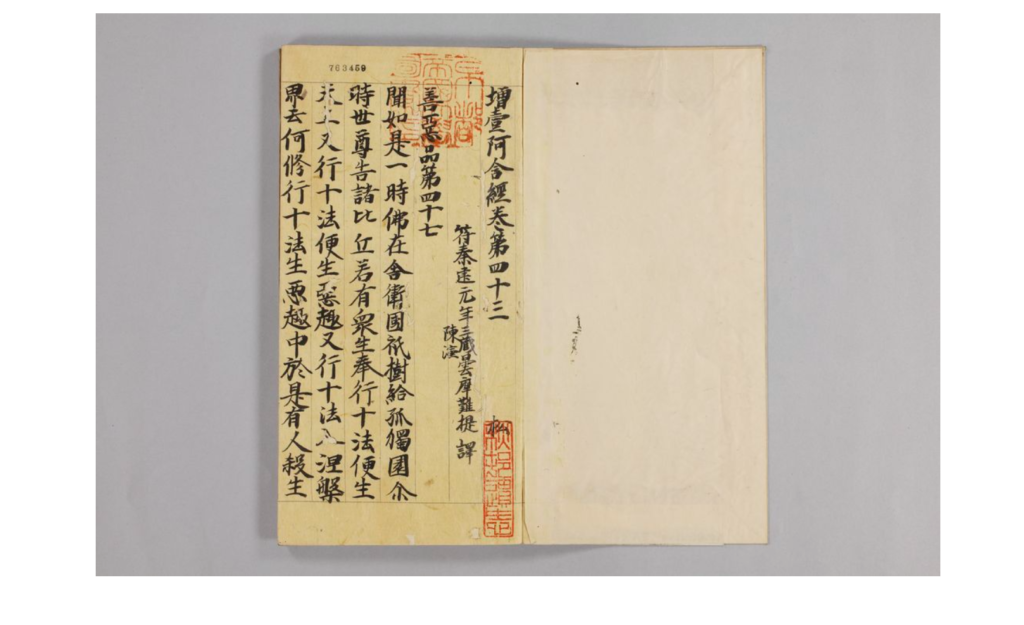 増壹阿含經卷第四十三
符秦建元年三藏曇摩難提譯
善惡品第四十七
聞如是一時佛在舍衛國祇樹給孤獨園尒
時世尊告諸比丘若有衆生奉行十法便生
天上又行十法便生惡趣又行十法入涅槃
界云何修行十法生惡趣中於是有人殺生
763459
松